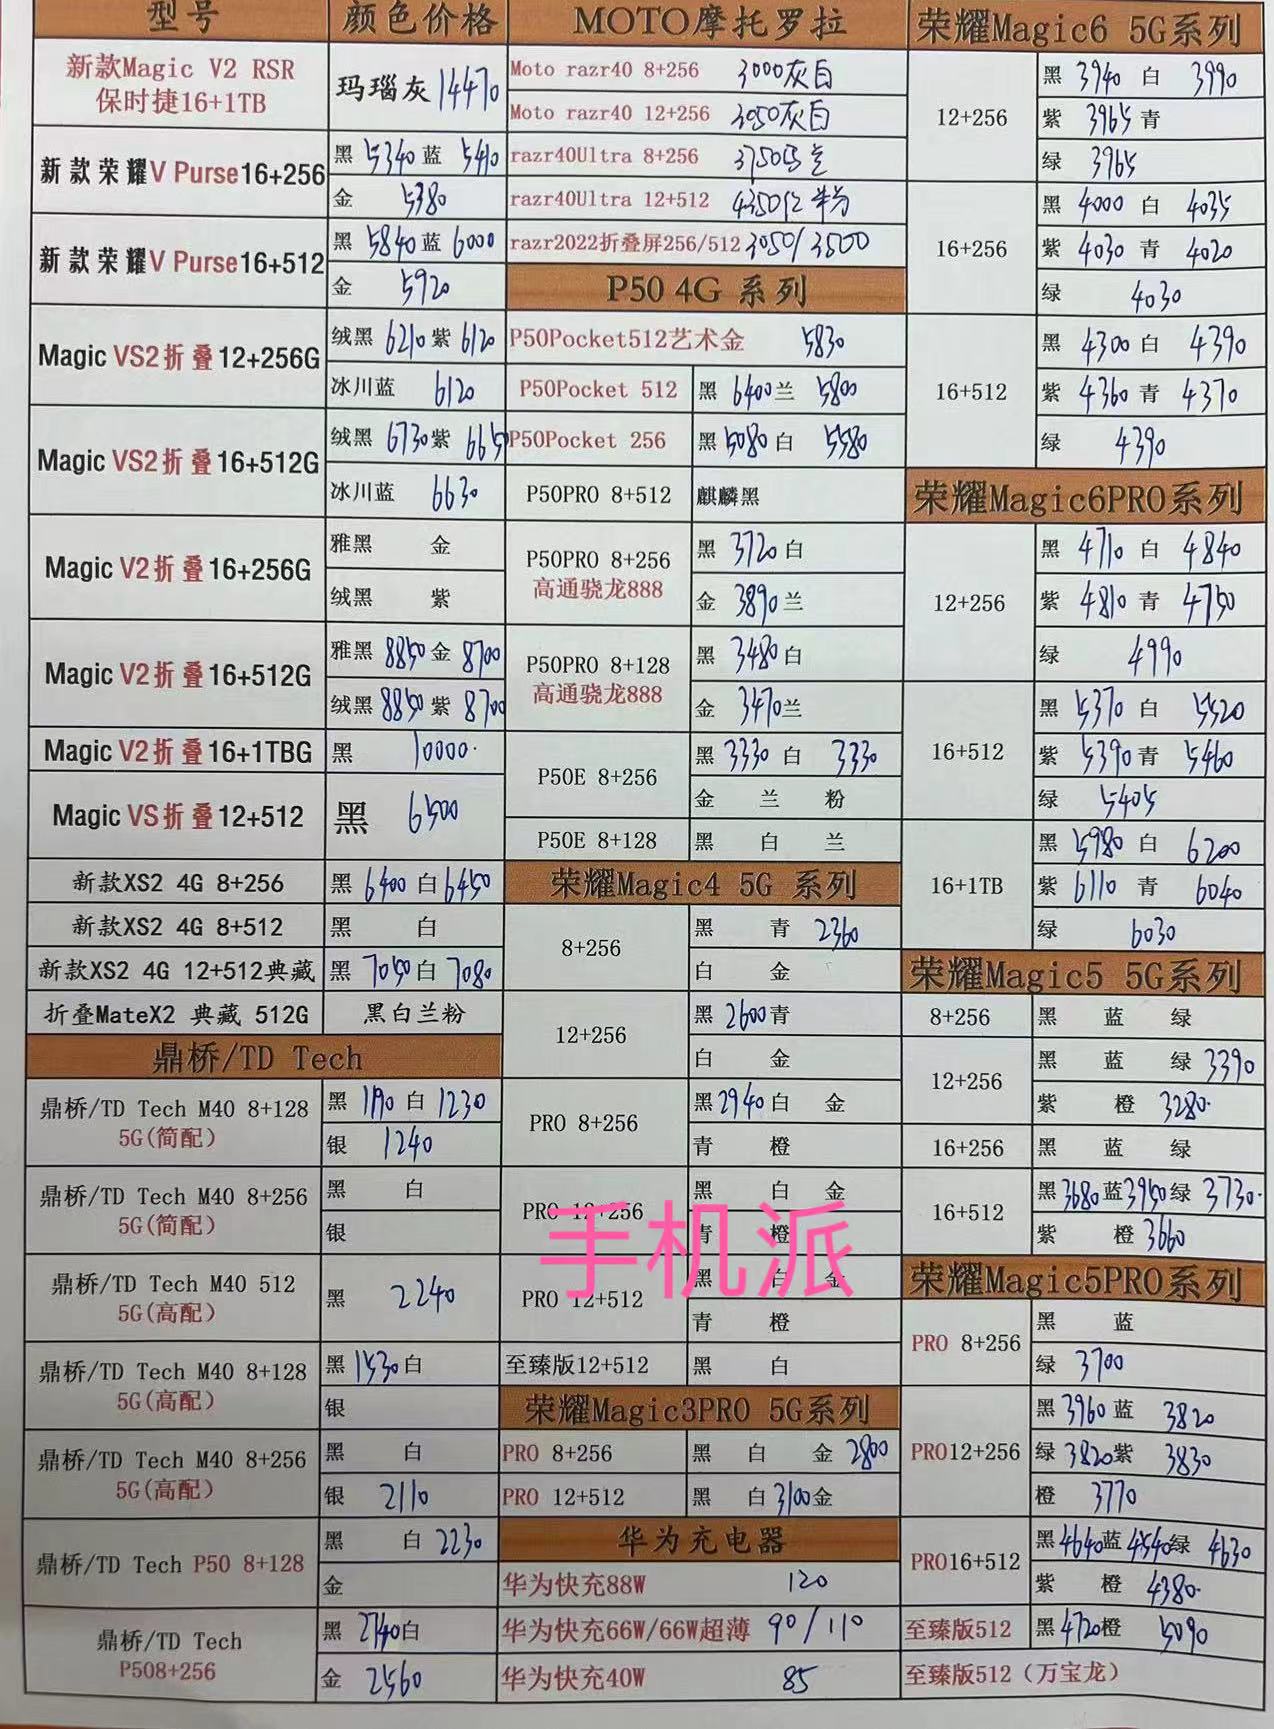 型号 颜色价格
新款Magic V2 RSR
保时捷16+1TB
玛瑙灰 14470
新款荣耀V Purse16+256
黑 5340 蓝 5410
金 5380
新款荣耀V Purse16+512
黑 5840 蓝 6000
金 5920
Magic VS2折叠12+256G
绒黑 6210 紫 6120
冰川蓝 6120
Magic VS2折叠16+512G
绒黑 6730 紫 6650
冰川蓝 6630
Magic V2折叠16+256G
雅黑 金
绒黑 紫
Magic V2折叠16+512G
雅黑 8850 金 8700
绒黑 8850 紫 8700
Magic V2折叠16+1TBG
黑 10000.
Magic VS折叠12+512
黑 6500
新款XS2 4G 8+256
黑 6400 白 6450
新款XS2 4G 8+512
黑 白
新款XS2 4G 12+512典藏
黑 7050 白 7080
折叠MateX2 典藏 512G
黑白兰粉
鼎桥/TD Tech
鼎桥/TD Tech M40 8+128
5G(简配)
黑 1190 白 1230
银 1240
鼎桥/TD Tech M40 8+256
5G(简配)
黑 白
银
鼎桥/TD Tech M40 512
5G(高配)
黑 2240
鼎桥/TD Tech M40 8+128
5G(高配)
黑 1530 白
银
鼎桥/TD Tech M40 8+256
5G(高配)
黑 白
银 2110
鼎桥/TD Tech P50 8+128
黑 白 2230
金
鼎桥/TD Tech
P508+256
黑 2740 白
金 2560
MOTO摩托罗拉
Moto razr40 8+256 3000灰白
Moto razr40 12+256 3050灰白
razr40Ultra 8+256 3750
razr40Ultra 12+512 4350
razr2022折叠屏256/512 3050/3500
P50 4G 系列
P50Pocket512艺术金 5830
P50Pocket 512
黑 6400 兰 5800
P50Pocket 256
黑 5080 白 5580
P50PRO 8+512
麒麟黑
P50PRO 8+256
高通骁龙888
黑 3720 白
金 3890 兰
P50PRO 8+128
高通骁龙888
黑 3480 白
金 3470 兰
P50E 8+256
黑 3330 白 3330
金 兰 粉
P50E 8+128
黑 白 兰
荣耀Magic4 5G 系列
8+256
黑 青 2360
白 金
12+256
黑 2600 青
白 金
PRO 8+256
黑 2940 白 金
青 橙
PRO 12+256
黑 白 金
青 橙
手机派
PRO 12+512
黑 白 金
青 橙
至臻版12+512
黑 白
荣耀Magic3PRO 5G系列
PRO 8+256
黑 白 金 2800
PRO 12+512
黑 白 3100 金
华为充电器
华为快充88W 120
华为快充66W/66W超薄 90/110
华为快充40W 85
荣耀Magic6 5G系列
12+256
黑 3940 白 3990
紫 3965 青
绿 3965
16+256
黑 4000 白 4035
紫 4030 青 4020
绿 4030
16+512
黑 4300 白 4390
紫 4360 青 4370
绿 4390
荣耀Magic6PRO系列
12+256
黑 4710 白 4840
紫 4810 青 4750
绿 4990
16+512
黑 5370 白 5520
紫 5390 青 5460
绿 5405
16+1TB
黑 5980 白 6200
紫 6110 青 6040
绿 6030
荣耀Magic5 5G系列
8+256
黑 蓝 绿
12+256
黑 蓝 绿 3390
紫 橙 3280.
16+256
黑 蓝 绿
16+512
黑 3680 蓝 3950 绿 3730.
紫 橙 3660
荣耀Magic5PRO系列
PRO 8+256
黑 蓝
绿 3700
PRO12+256
黑 3960 蓝 3820
绿 3820 紫 3830
橙 3770
PRO16+512
黑 4640 蓝 4540 绿 4630
紫 橙 4380.
至臻版512
黑 4720 橙 5090
至臻版512（万宝龙）